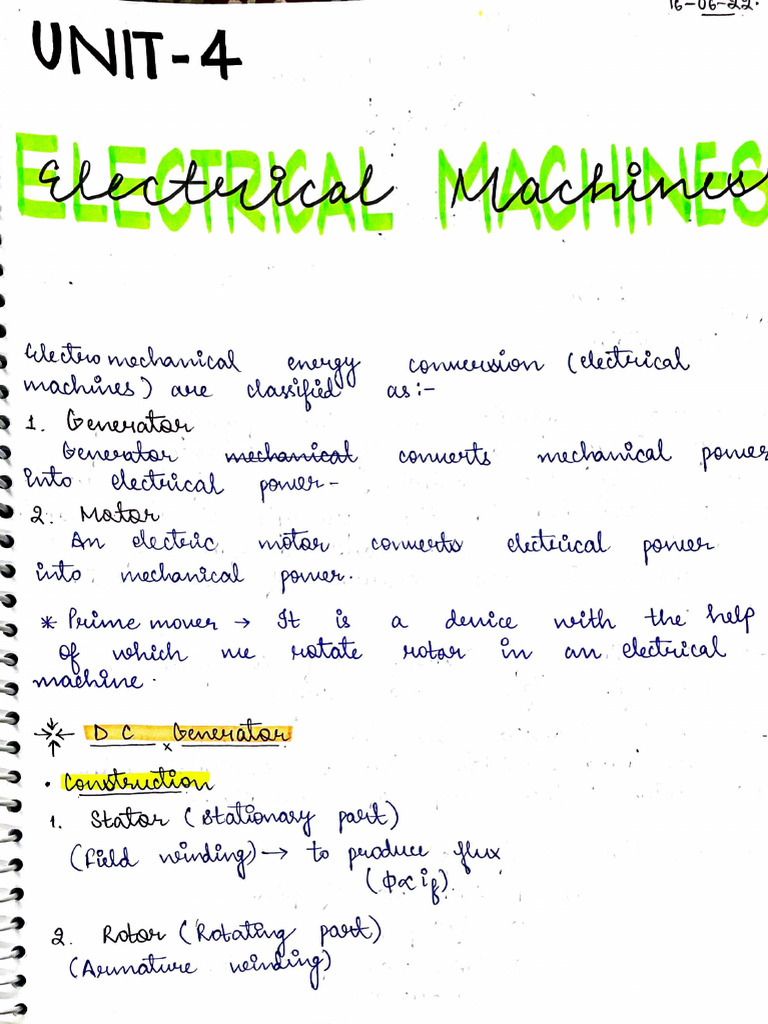 16-06-22.
UNIT-4
Electrical Machines
Electromechanical energy conversion (electrical
machines) are classified as:-
1. Generator
Generator mechanical converts mechanical power
into electrical power-
2. Motor
An electric motor converts electrical power
into mechanical power.
* Prime mover → It is a device with the help
of which we rotate rotor in an electrical
machine.
DC Generator
• Construction
1. Stator (Stationary part)
(Field winding) → to produce flux
(Φ∝if).
2. Rotor (Rotating part)
(Armature winding)